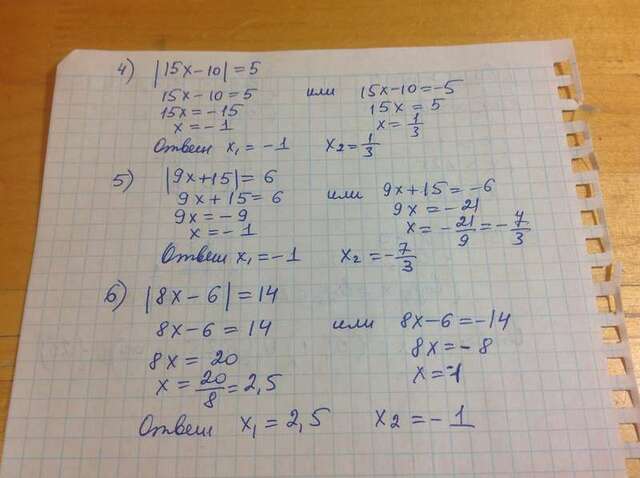 4) |15x-10|=5
15x-10=5 или 15x-10=-5
15x=-15 15x=5
x=-1 x=1/3
Ответ x₁=-1 x₂=1/3
5) |9x+15|=6
9x+15=6 или 9x+15=-6
9x=-9 9x=-21
x=-1 x=-21/9=-7/3
Ответ x₁=-1 x₂=-7/3
6) |8x-6|=14
8x-6=14 или 8x-6=-14
8x=20 8x=-8
x=20/8=2,5 x=-1
Ответ x₁=2,5 x₂=-1